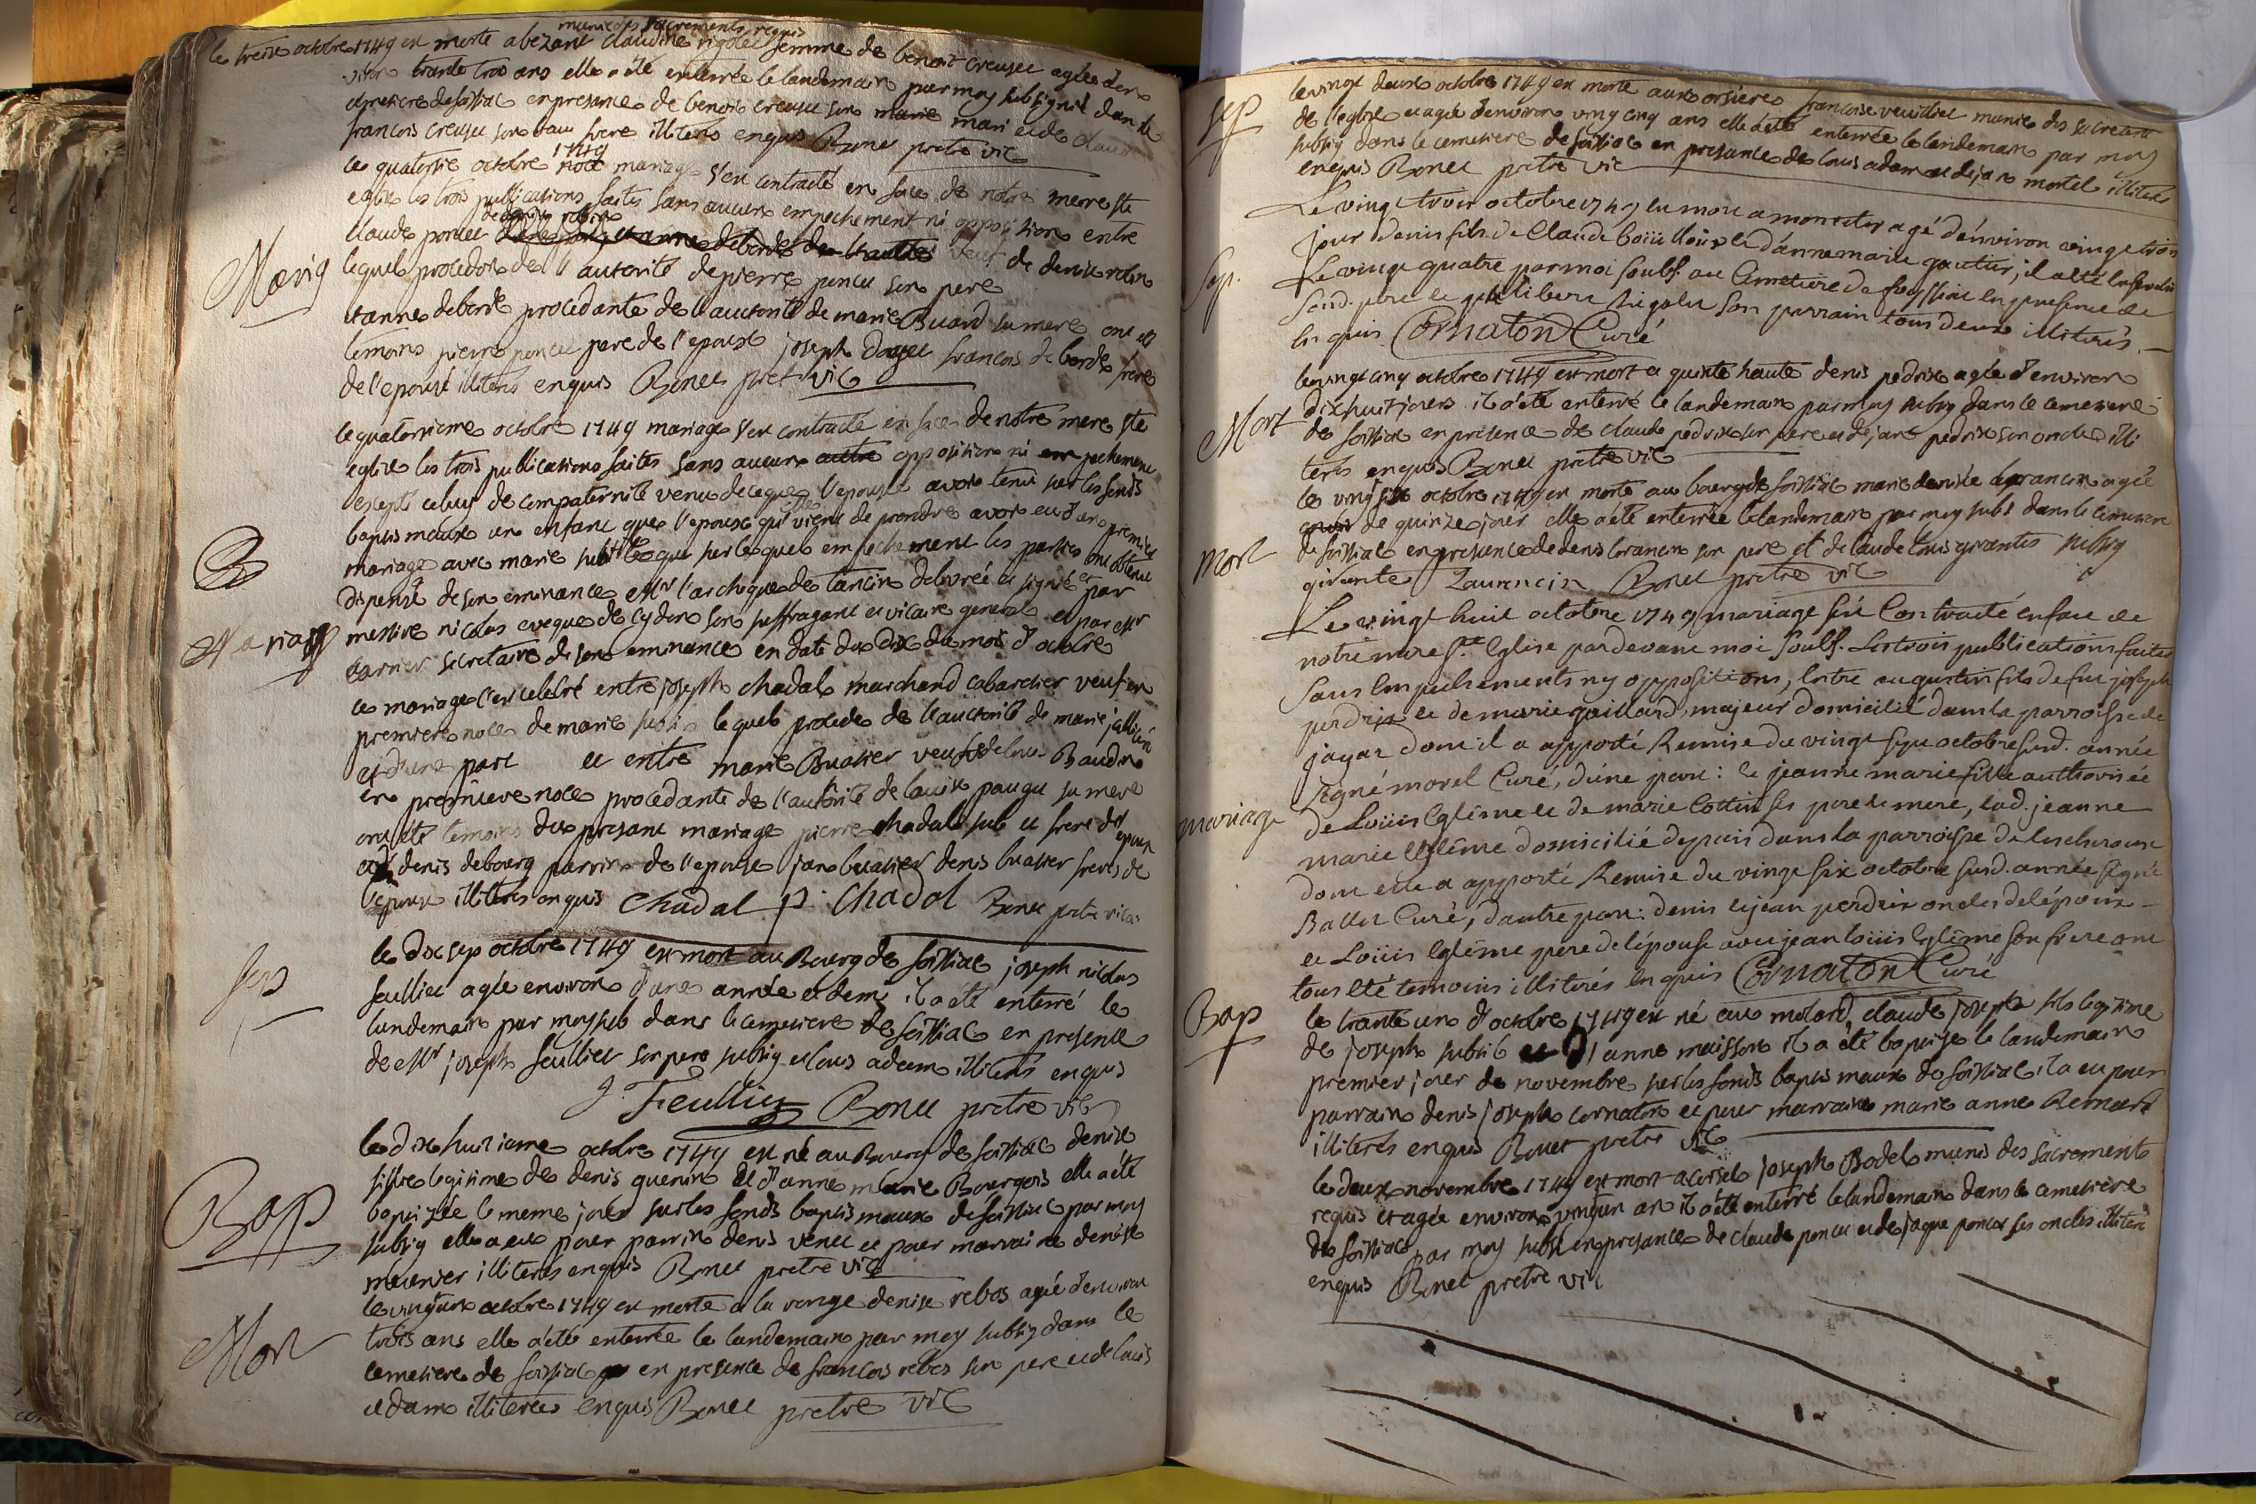 munie des sacrements requis
le treize octobre 1749 est morte a bezant claudine rigolet femme de benoit creuset agée den
viron trante trois ans elle a été enterrée le landemain par moy subsigné dans le
cimetiere de foissiac en presance de benoit creuset son marie mari et de claud
francois creuset son beau frere illiterés enquis Bonet pretre vic
1749
le quatorzie octobre noce mariage s'est contracté en face de notre mere ste
eglise les trois publications faites sans aucun empechement ni opposition entre
de denise robin
claude poncet et anne deborde veuf de denise robin
lequel procedo de l'autorité de pierre poncet son pere
et anne deborde procedante de l'auctorité de marie Buard sa mere ont été
temoins pierre poncet pere de l'epoux joseph francois deborde frere
de l'epouse illiterés enquis Bonet pret vic
Marig
le quatorzieme octobre 1749 mariage s'est contracté en face de notre mere ste
eglise les trois publications faites sans aucune autre opposition ni empechement
excepté celuy de compaternité venu de ceque l'epouse avoit tenu sur les fonds
baptismaux un enfant que l'epoux qui vient de prendre avoit eu d'un premier
mariage avec marie subtil sur lequel empechement les parties ont obtenu
dispense de son eminance Mgr l'archeveque de tancin delivrée et signée par
messire nicolas eveque de cydon son suffragant et vicaire general et par Mr
Mariage
garnier secretaire de son eminance en date du dix du mois d'octobre
ce mariage s'est celebré entre joseph chadal marchand cabartier veuf en
premiere noce de marie subtil lequel procede de l'auctorité de marie
et d'une part et entre marie Buatier veufve de louis Baudin
en premiere noce procedante de l'autorité de louise pauget sa mere
ont été temoins du presant mariage pierre chadal sub et frere de l'epoux
denis debourg parrin de l'epouse jan buatier denis buatier freres de
l'epouse illiterés enquis Chadal p. Chadal Bonet pretre vicai
Sep
le dix sep octobre 1749 est mort au Bourg de foissiac joseph nicolas
feullier agée environ d'une année et demi il a été enterré le
landemain par moy sub dans le cemetiere de foissiac en presence
de Mr joseph feullier son pere subsig et louis adam illiterés enquis
J. Feullier Bonet pretre vic
Bap
le dix huitieme octobre 1749 est né au Bourg de foissiac denise
fille legitime de denis guerin et d'anne marie Bourgeois elle a été
baptizée le meme jour sur les fonds baptismaux de foissiac par moy
subsig elle a eu pour parrin denis venet et pour marraine denise
meunier illiterés enquis Bonet pretre vic
Mort
le vingtun octobre 1749 est morte a la verge denise rebos agée d'environ
trois ans elle a été enterrée le landemain par moy subsig dans le
cemetiere de foissiac en presance de francois rebos son pere et de louis
adam illiterés enquis Bonet pretre vic
Sep
le vingt deux octobre 1749 est morte aux orsieres francoise veuillet munie des sacreants
de l'eglise et agée d'environ vingt cinq ans elle a été enterrée le landemain par moy
subsig dans le cemetiere de foissiac en presance de louis adam et de jan mortel illiterés
enquis Bonet pretre vic
Sep.
Le vingt trois octobre 1749 est mort a montrter agé d'environ vingt trois
jour denis fils de Claude boüillouz et d'annemarie gautier, il a été inhumé
Le vingt quatre par moi soubs. au Cimetiere de foissiat en presence de
son d. pere et philibert Rigolet son parrain tous deux illiterés
enquis Cornaton Curé
Mort
le vingt cinq octobre 1749 est mort a quinte haute denis pedrix agée d'environ
dix huit jours il a été enterré le landemain par moy subsig dans le cemetiere
de foissiac en présence de claude pedrix son pere et de jant pedrix son oncle illi
terés enquis Bonet pretre vic
Mort
le vingt six octobre 1749 est morte au bourg de foissiac marie denise lorancin agée
de quinze jour elle a été enterrée le landemain par moy subs dans le cemetiere
de foissiac en presance de denis lorancin son pere et de claude louis givantes subsig
givante Laurencin Bonet pretre vic
mariage
Le vingt huit octobre 1749 mariage s'est Contracté en face de
notre mere Ste. Eglise pardevant moi soubs. Les trois publications faites
sans Empechements ny oppositions, Entre augustin fils de feu joseph
perdrix et de marie gaillard, majeur domicilié dans la parroisse de
jayat dont il a apporté Remise du vingt sept octobre susd. année
signé morel Curé, d'une part: et jeanne marie fille authorisée
de Loüis Eglême et de marie Cottin ses pere et mere, lad. jeanne
marie Eglême domicilié depuis dans la parroisse de Lescheroux
dont elle a apporté Remise du vingt six octobre susd. année signé
Ballet Curé, d'autre part: denis et jean perdrix oncles de l'époux
et Loüis Eglême pere de l'épouse avec jean loüis Eglême son frere ont
tous été temoins illiterés enquis Cornaton Curé
Bap
le trante un d'octobre 1749 est né au molard claude joseph fils legitime
de joseph subtil et d'anne maisson il a été baptise le landemain
premier jour de novembre sur les fonds baptismaux de foissiac il a eu pour
parrain denis joseph cornaton et pour marraine marie anne Remart
illiterés enquis Bonet pretre vic
le deux novembre 1749 est mort a corsel joseph Bodel munis des sacrements
requis et agée environ vingtun an il a été enterré le landemain dans le cemetiere
de foissiac par moy subs en presance de claude poncet et de jaque poncet ses oncles illiterés
enquis Bonet pretre vic